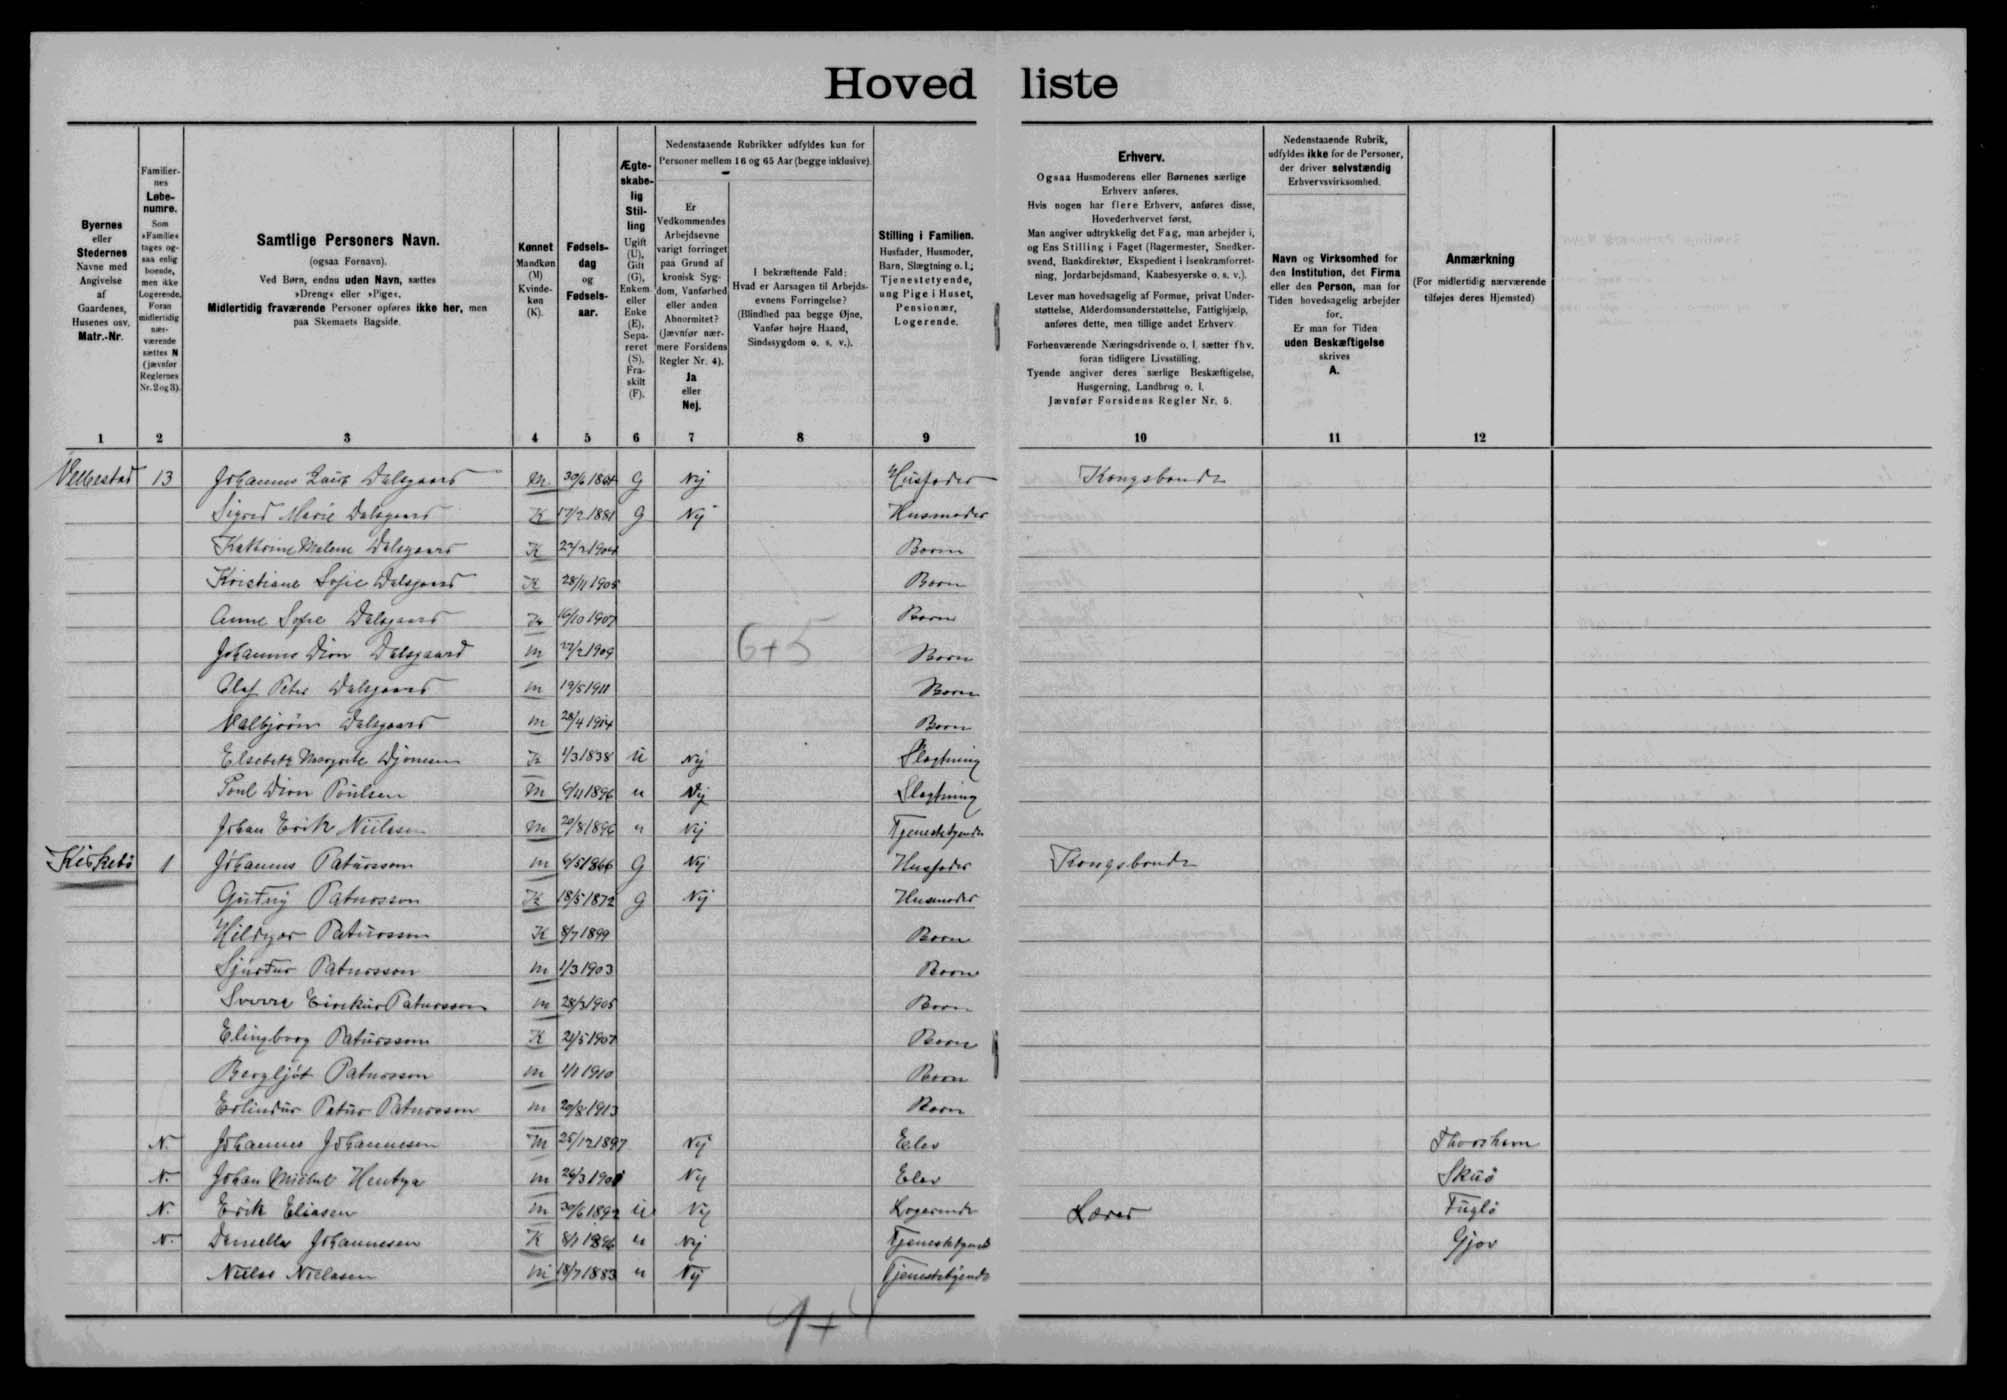 Hovedliste
Byernes eller Stedernes Navne med Angivelse af Gaardenes, Husenes osv. Matr.-Nr.
Familiernes Løbenumre. Som »Familie« tages ogsaa enlig boende, men ikke Logerende. Foran midlertidig nærværende sættes N (jævnfør Reglernes Nr. 2 og 3).
Samtlige Personers Navn. (ogsaa Fornavn). Ved Børn, endnu uden Navn, sættes »Dreng« eller »Pige«. Midlertidig fraværende Personer opføres ikke her, men paa Skemaets Bagside.
Kønnet Mandkøn (M) Kvindekøn (K).
Fødselsdag og Fødselsaar.
Ægteskabelig Stilling Ugift (U), Gift (G), Enkem. eller Enke (E), Separeret (S), Fraskilt (F).
Nedenstaaende Rubrikker udfyldes kun for Personer mellem 16 og 65 Aar (begge inklusive).
Er Vedkommendes Arbejdsevne varigt forringet paa Grund af kronisk Sygdom, Vanførhed eller anden Abnormitet? (Jævnfør nærmere Forsidens Regler Nr. 4). Ja eller Nej.
I bekræftende Fald: Hvad er Aarsagen til Arbejdsevnens Forringelse? (Blindhed paa begge Øjne, Vanfør højre Haand, Sindssygdom o. s. v.).
Stilling i Familien. Husfader, Husmoder, Barn, Slægtning o. l.; Tjenestetyende, ung Pige i Huset, Pensionær, Logerende.
Erhverv.
Ogsaa Husmoderens eller Børnenes særlige Erhverv anføres.
Hvis nogen har flere Erhverv, anføres disse, Hovederhvervet først.
Man angiver udtrykkelig det Fag, man arbejder i, og Ens Stilling i Faget (Bagermester, Snedkersvend, Bankdirektør, Ekspedient i Isenkramforretning, Jordarbejdsmand, Kaabesyerske o. s. v.).
Lever man hovedsagelig af Formue, privat Understøttelse, Alderdomsunderstøttelse, Fattighjælp, anføres dette, men tillige andet Erhverv.
Forhenværende Næringsdrivende o. l. sætter fhv. foran tidligere Livsstilling.
Tyende angiver deres særlige Beskæftigelse, Husgerning, Landbrug o. l.
Jævnfør Forsidens Regler Nr. 5.
Nedenstaaende Rubrik, udfyldes ikke for de Personer, der driver selvstændig Erhvervsvirksomhed.
Navn og Virksomhed for den Institution, det Firma eller den Person, man for Tiden hovedsagelig arbejder for.
Er man for Tiden uden Beskæftigelse skrives A.
Anmærkning (For midlertidig nærværende tilføjes deres Hjemsted)
1 2 3 4 5 6 7 8 9 10 11 12
Velbestad 13 Johannes Dalsgaard M 30/6 1864 G Nej Husfader Kongsbonde
Sigrid Marie Dalsgaard K 17/2 1881 G Nej Husmoder
Kathrine Malene Dalsgaard K 27/2 1904 Barn
Kristiane Sofie Dalsgaard K 28/11 1905 Barn
Anne Sofie Dalsgaard K 16/10 1907 Barn
Johannes Dion Dalsgaard M 27/2 1909 Barn
6+5
Olaf Peter Dalsgaard M 19/5 1911 Barn
Valbjörn Dalsgaard M 28/4 1914 Barn
Elsebeth Margrete Djonesen K 1/3 1838 U Nej Slægtning
Poul Dion Poulsen M 9/11 1896 u Nej Slægtning
Johan Erik Nielsen M 20/8 1896 u Nej Tjenestetyende
Kirkebö 1 Jóhannes Patursson M 6/5 1866 G Nej Husfader Kongsbonde
Guðny Patursson K 18/5 1872 G Nej Husmoder
Hildigar Patursson K 8/7 1899 Barn
Sjúrður Patursson M 1/3 1903 Barn
Sverre Eirikur Patursson M 28/3 1905 Barn
Elingborg Patursson K 21/5 1907 Barn
Bergljót Patursson M 1/1 1910 Barn
Erlindur Petur Patursson M 20/8 1913 Barn
N. Johannes Johannesen M 25/12 1897 Nej Elev Thorshavn
N. Johan Michel Hentze M 24/3 190 Nej Elev Skuö
N. Erik Eliasen M 30/6 1892 U Nej Logerende Lærer Fuglö
N. Daniella Johannesen K 8/1 1896 u Nej Tjenestetyende Gjov
Niels Nielasen M 18/7 1883 u Nej Tjenestetyende
9+4